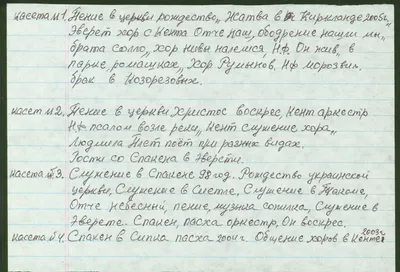 кассета №1. Пение в церкви рождество,, Жатва в Киркланде 2005г,,
Эверет хор с Кента Отче наш, ободрение наши мы,,
брата соло,, хор нивы НФ. Он жив, в
парке, ромашках,, Хор Румынов, НФ
брак в Козорезовых.
кассет №2. Пение в церкви Христос воскрес, Кент оркестр
НФ псалом возле реки,, Кент служение хора,,
Людмила поёт при разных видах.
Гости со Спакена в Эверети.
кассета №3. Служение в Спакене 98 год. Рождество украинской
церкви, Служение в Сиетле, Служение в Такоме,
Отче небесный, пение, музыка сопилка, Служение в
Эверете. Спакен, пасха оркестр, Он воскрес.
кассета №4. Спакен в пасха 2004г. Общение хоров в Кенте 2003г